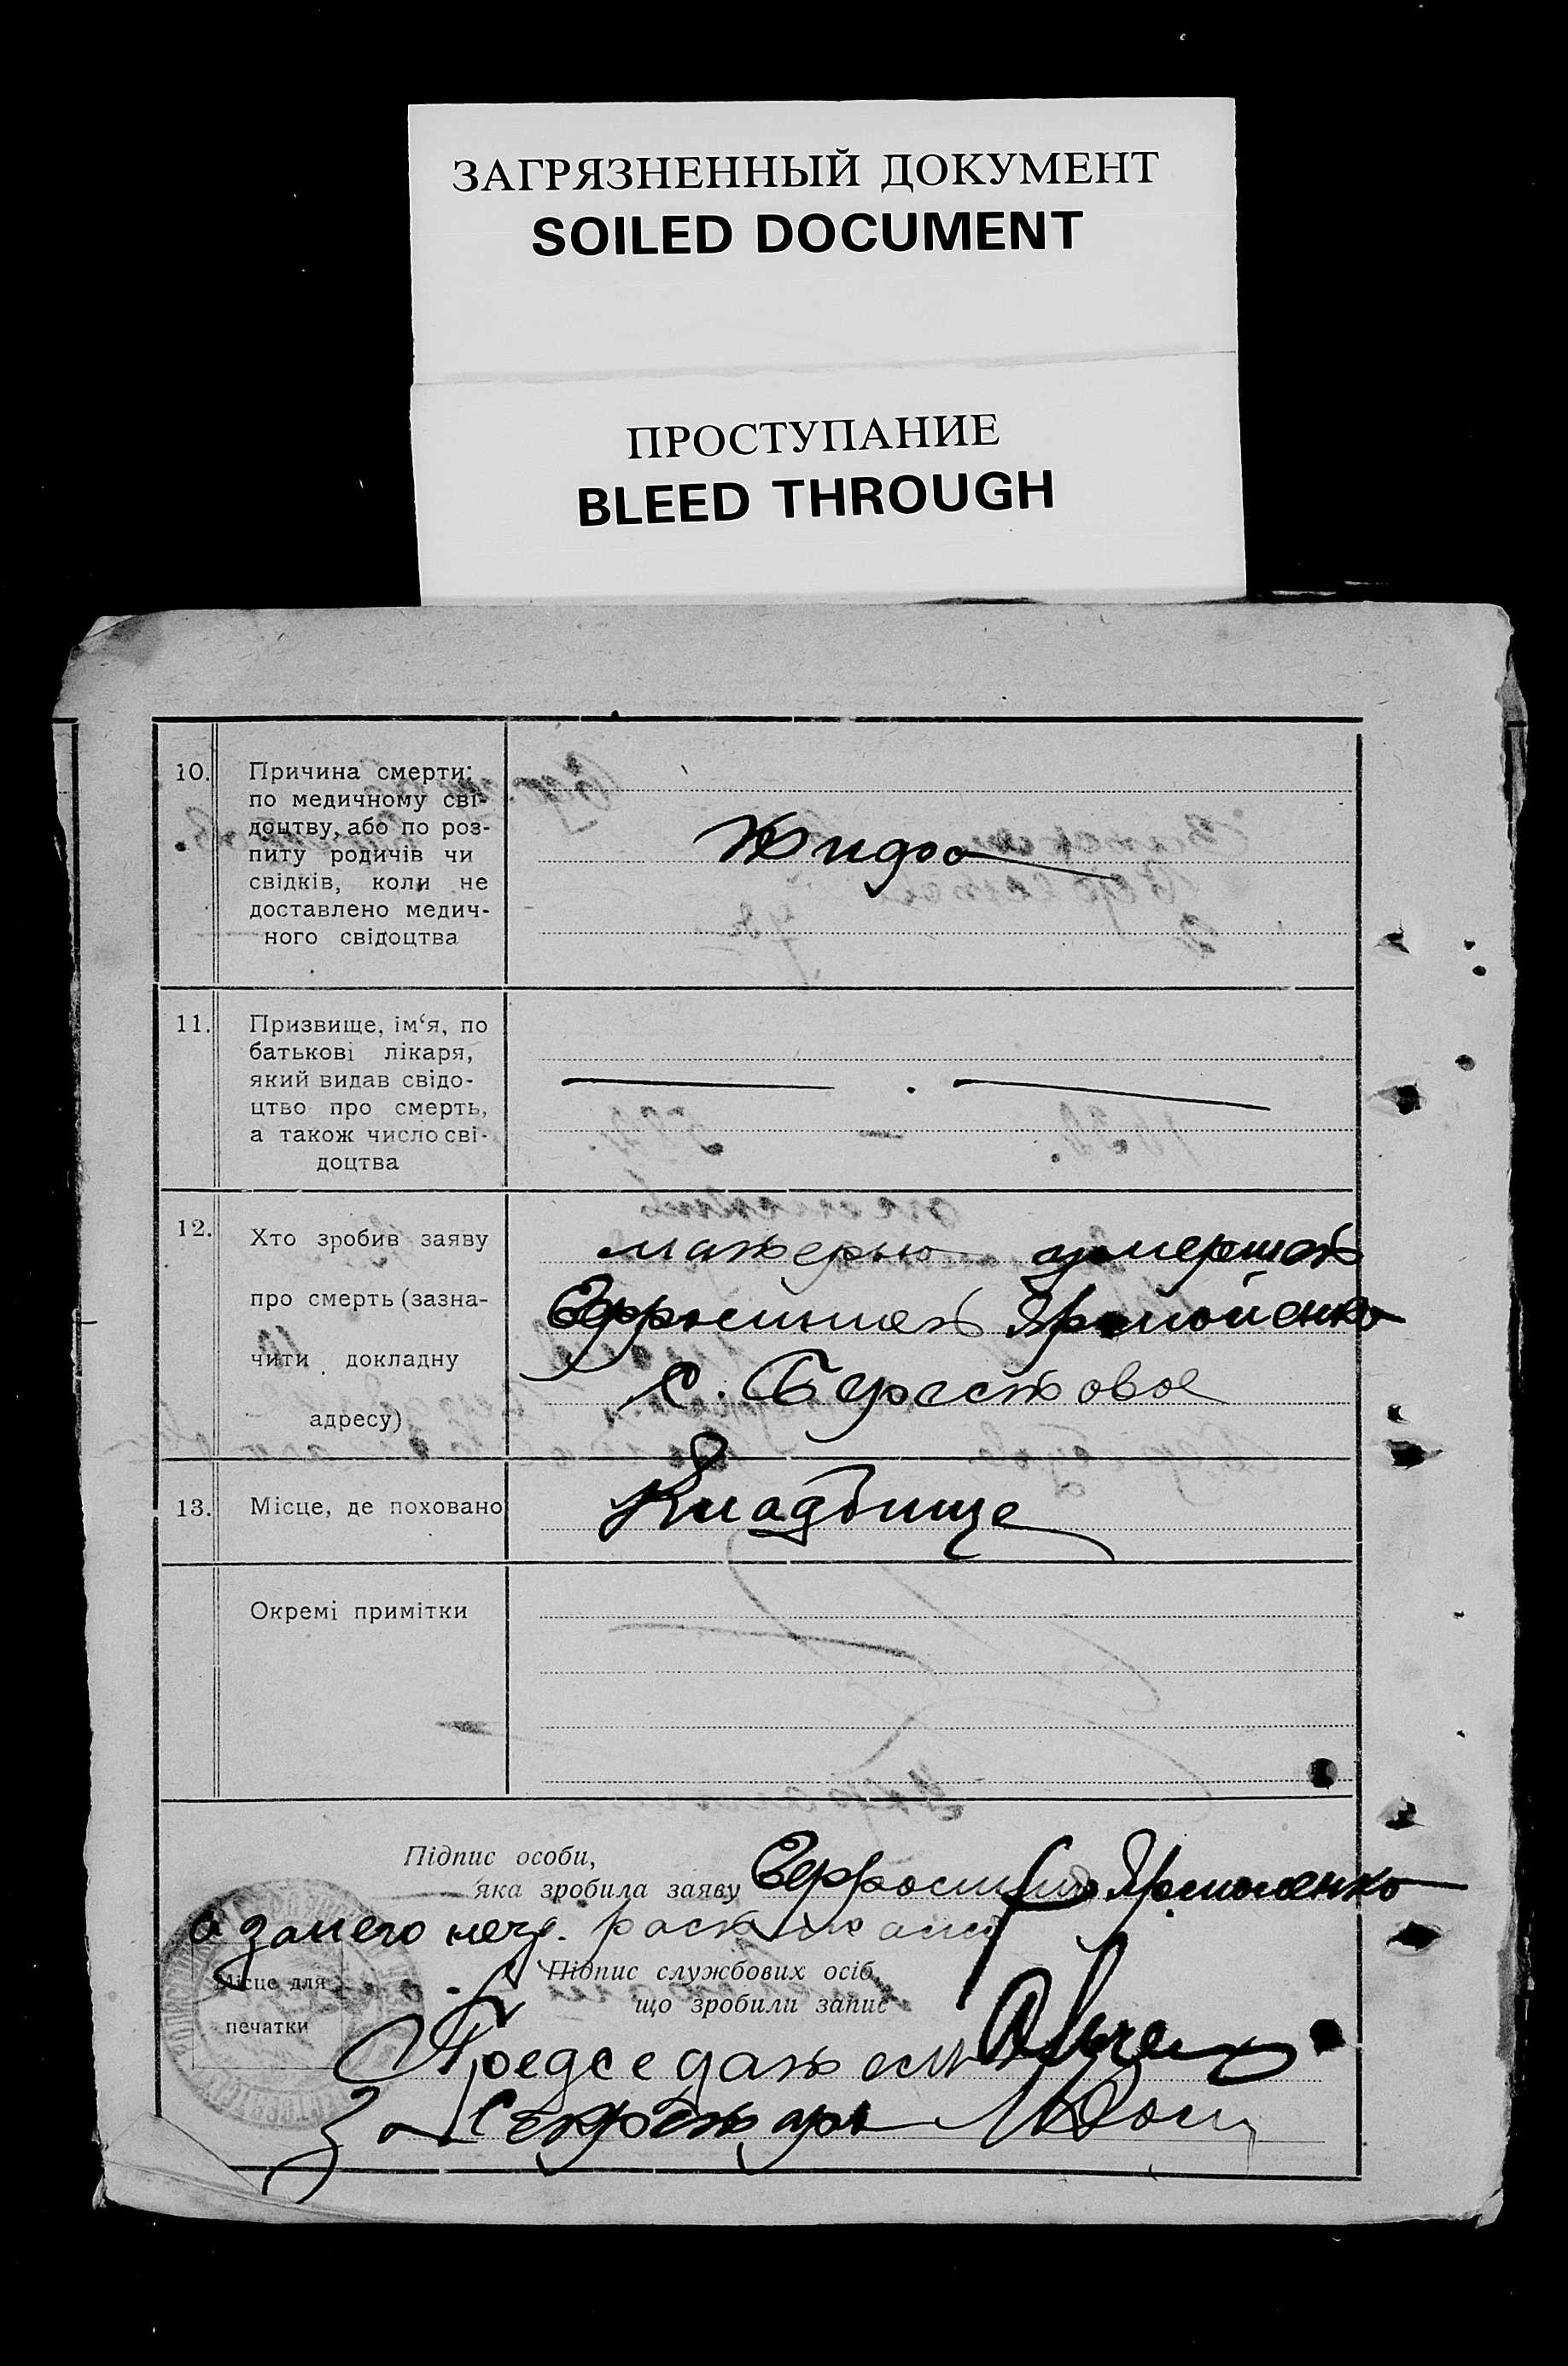 ЗАГРЯЗНЕННЫЙ ДОКУМЕНТ
SOILED DOCUMENT
ПРОСТУПАНИЕ
BLEED THROUGH
10.
Причина смерти:
по медичному сві-
доцтву, або по роз-
питу родичів чи
свідків, коли не
доставлено медич-
ного свідоцтва
11.
Призвище, ім‘я, по
батькові лікаря,
який видав свідо-
цтво про смерть,
а також число сві-
доцтва
12.
Хто зробив заяву
про смерть (зазна-
чити докладну
адресу)
матерью умершей
Ефросинией
с. Берестовое
13.
Місце, де поховано
Кладбище
Окремі примітки
Підпис особи,
яка зробила заяву
Ефросиния
а за него
Підпис службових осіб,
що зробили запис
Місце для
печатки
Председатель
За Секретарь